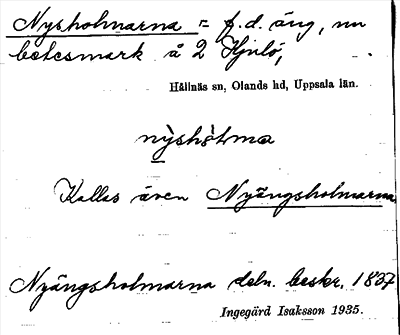 Nysholmarna = f.d. äng, nu
betesmark å 2 Hjulö,
Hållnäs sn, Olands hd, Uppsala län.
nỳshòlma
Kallas även Nyängsholmarna
Nyängsholmarna deln. beskr. 1837
Ingegärd Isaksson 1935.